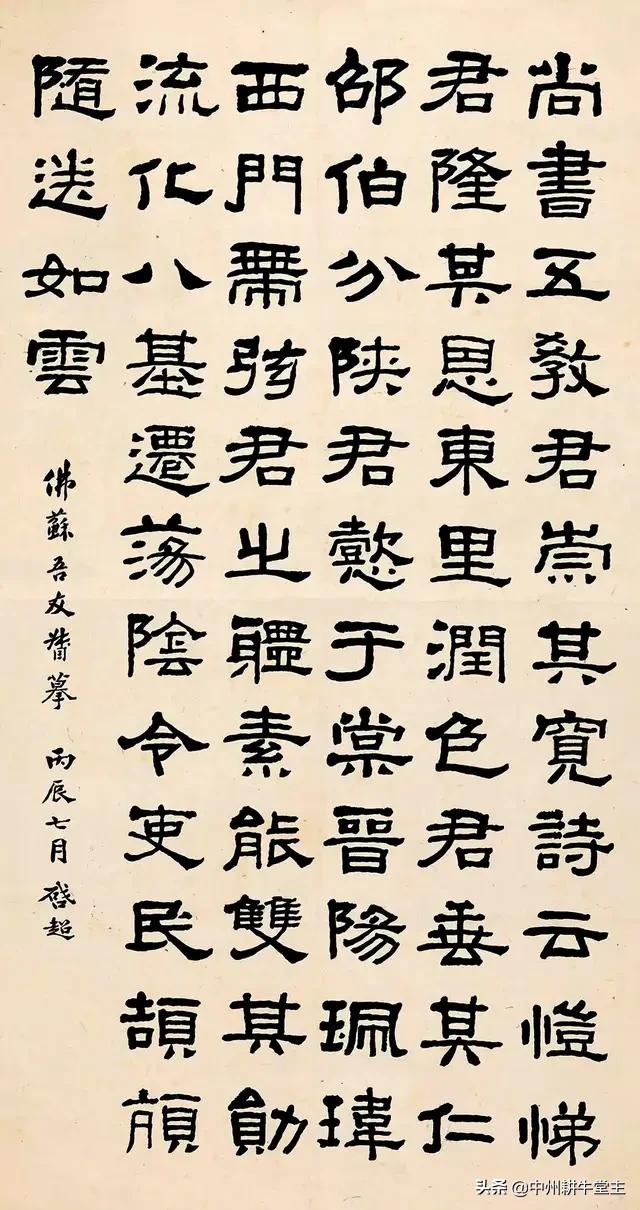 尚書五教君崇其寬詩云愷悌
君隆其恩東里潤色君垂其仁
邵伯分陝君懿于棠晉陽珮瑋
西門帶弦君之體素能雙其勛
流化八基遷蕩陰令吏民頡頏
隨送如雲
佛蘇吾友督摹 丙辰七月 啓超
头条 @中州耕牛堂主